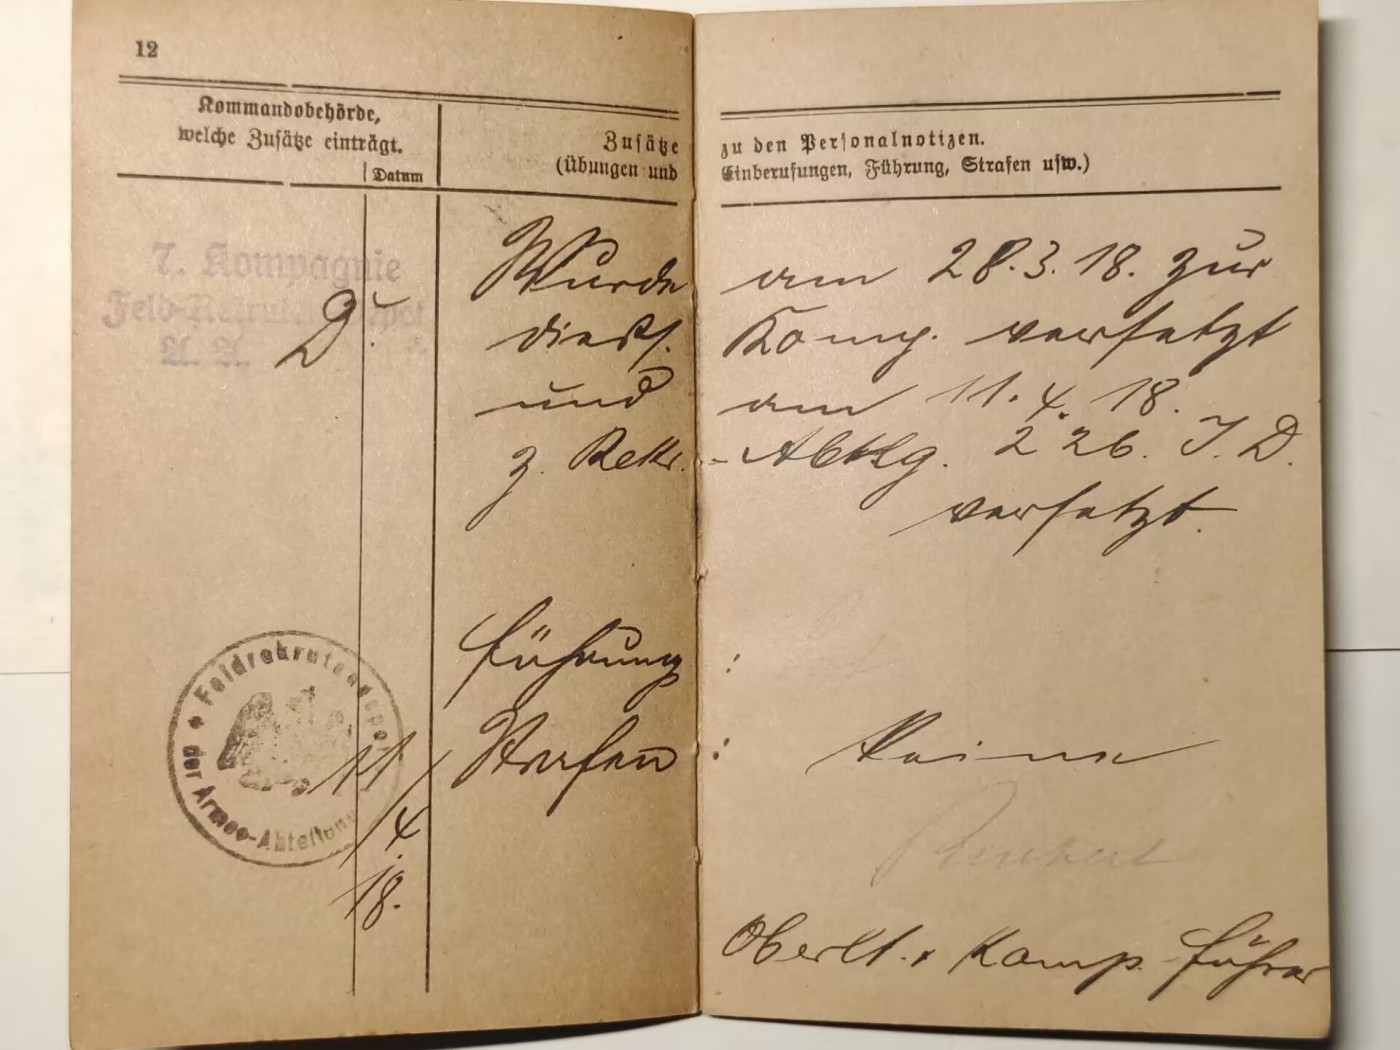 12
Kommandobehörde,
welche Zusätze einträgt.
Datum
Zusätze
(Übungen und
zu den Personalnotizen.
Einberufungen, Führung, Strafen usw.)
7. Kompagnie
Feld-Rekruten-Depot
A. A. D.
Wurde am 28.3.18. zur
diess. Komp. versetzt
und am 11.4.18.
z. Rekr.-Abtlg. 226. I. D.
versetzt.
Feldrekrutendepot
der Armee-Abteilung
11/4.
18.
Führung :
Strafen : Keine
Oberlt. u. Komp.-Führer